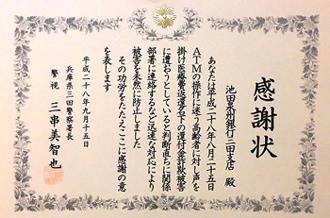 感謝状
池田泉州銀行三田支店 殿
あなたは平成二十八年八月二十五日
ATMの操作に迷う高齢者に対し声を
掛け医療費返還名下の還付金詐欺被害
に遭おうとしていると判断直ちに関係
部署に連絡するなど迅速な対応により
被害を未然に防止しました
その功労をたたえここに感謝の意
を表します
平成二十八年九月十五日
兵庫県三田警察署長
警視 三串美智也